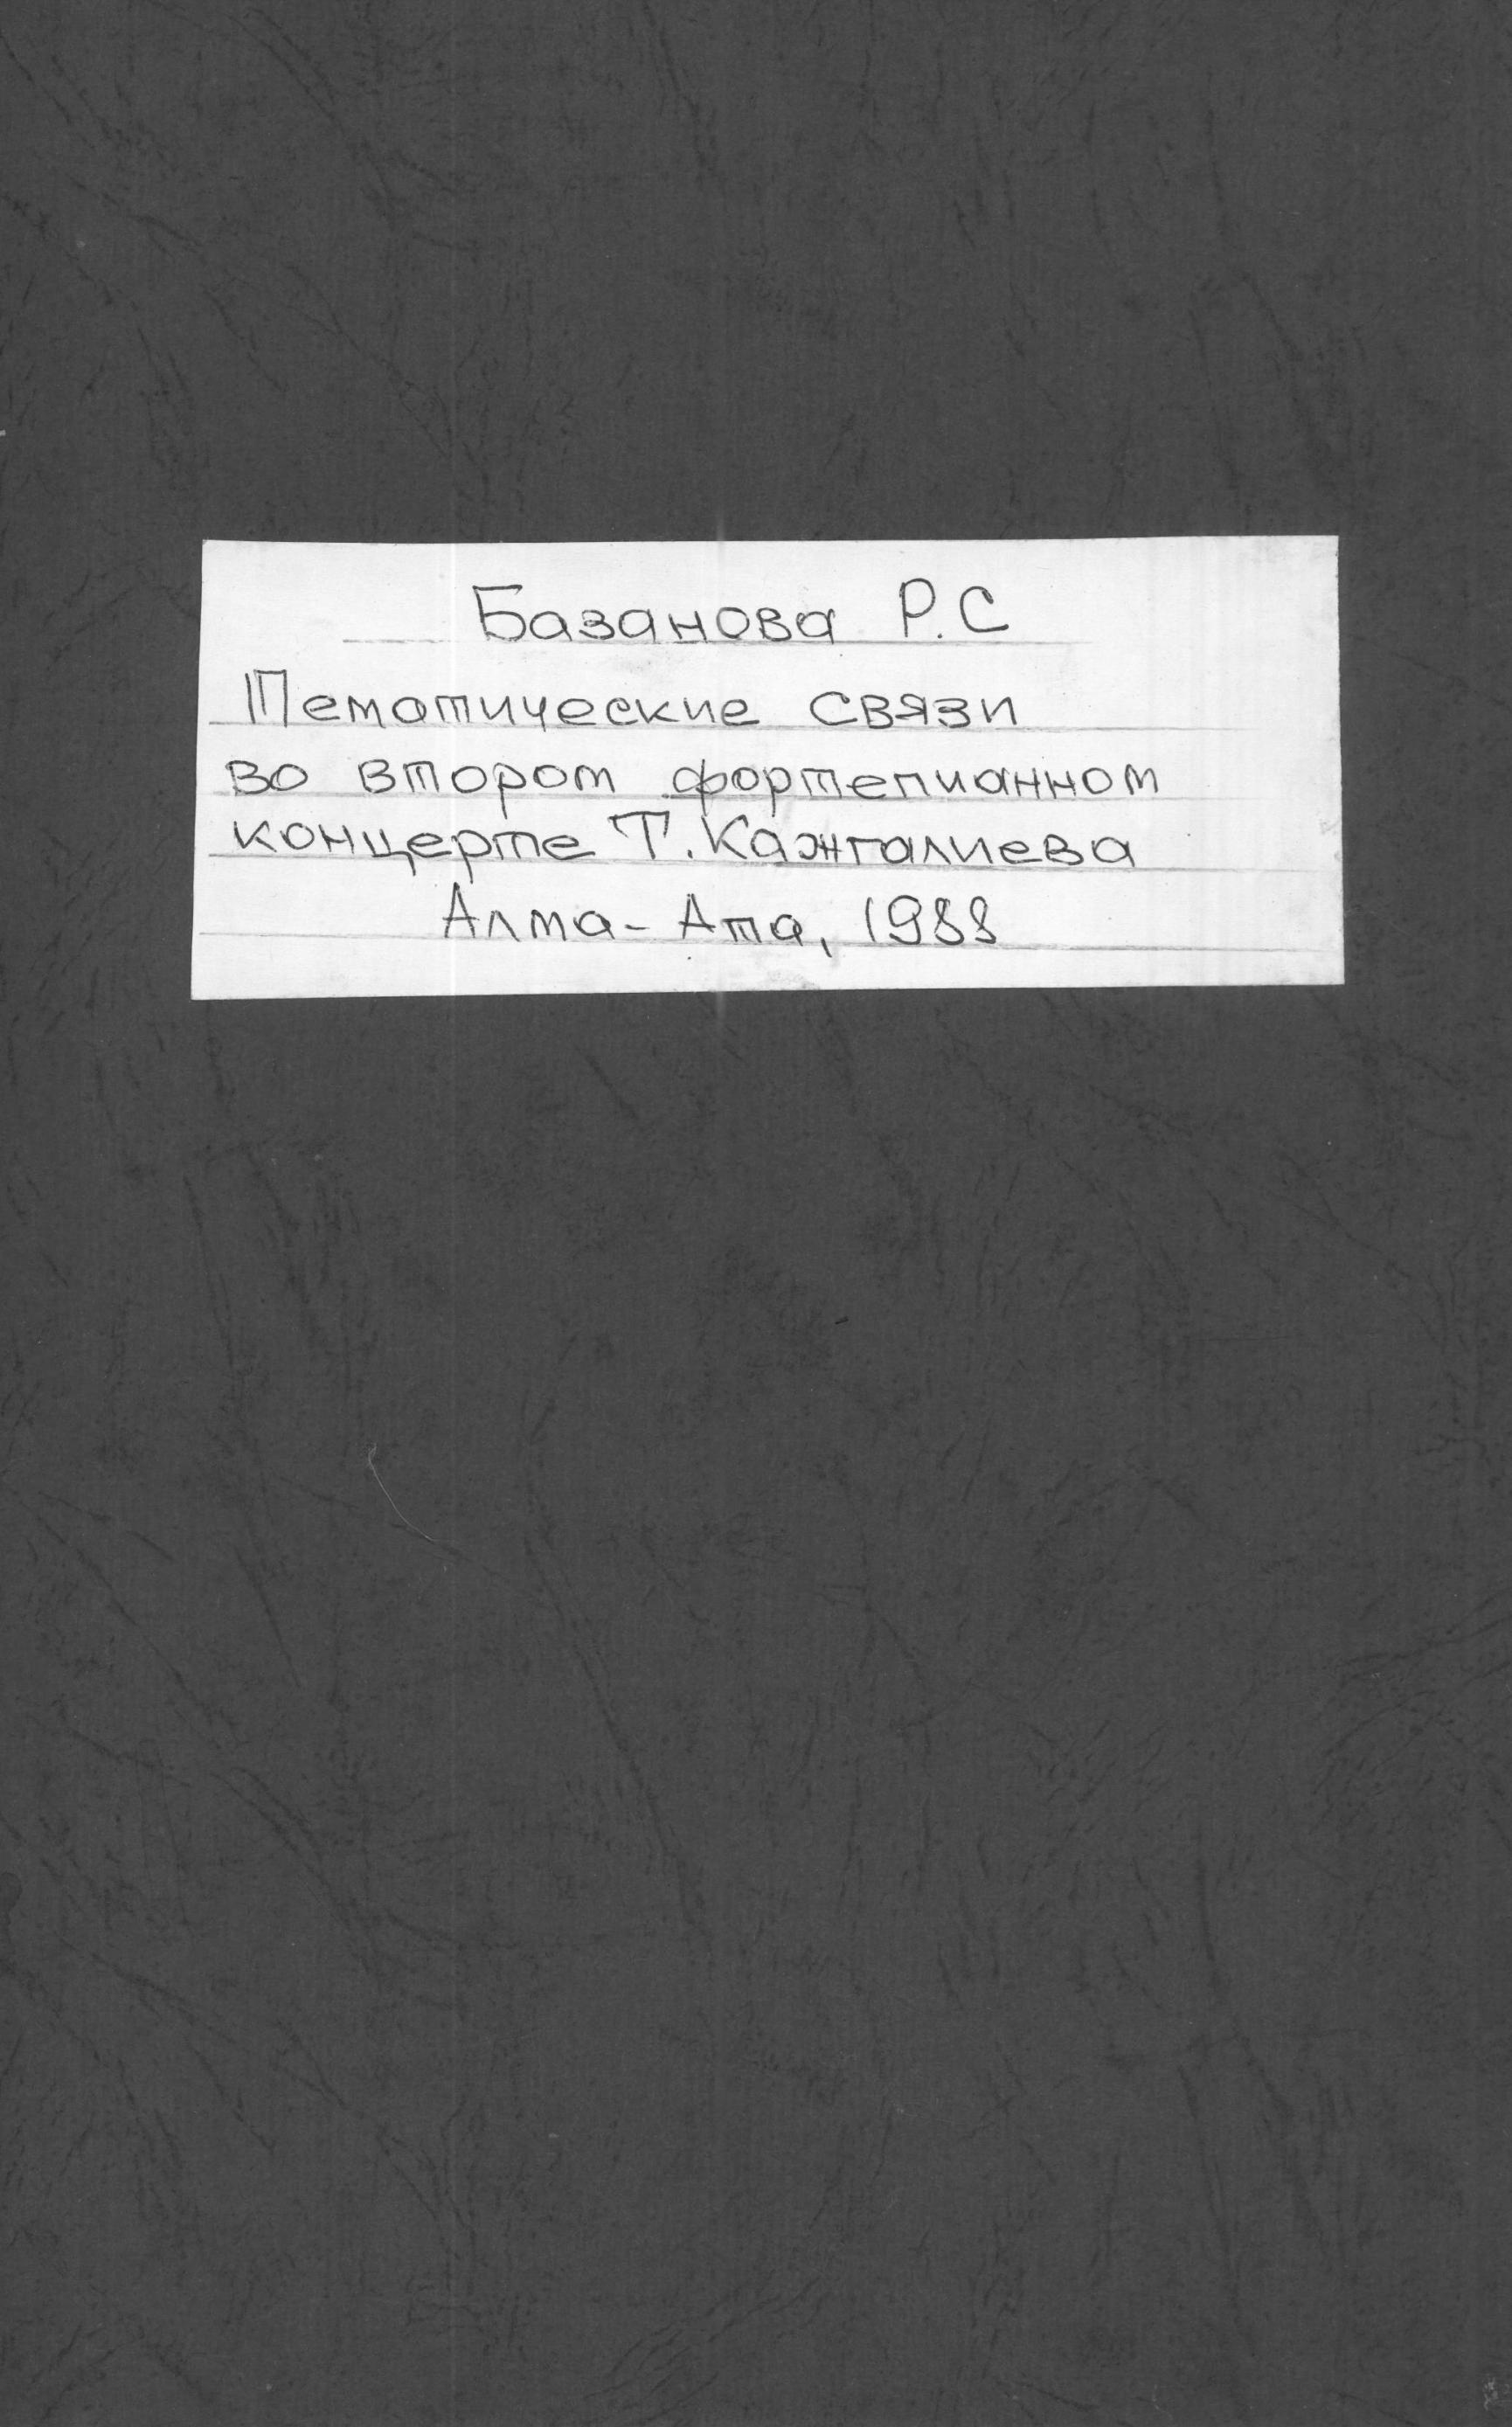 Базанова Р.С
Тематические связи
во втором фортепианном
концерте Т.Кажгалиева
Алма-Ата, 1988